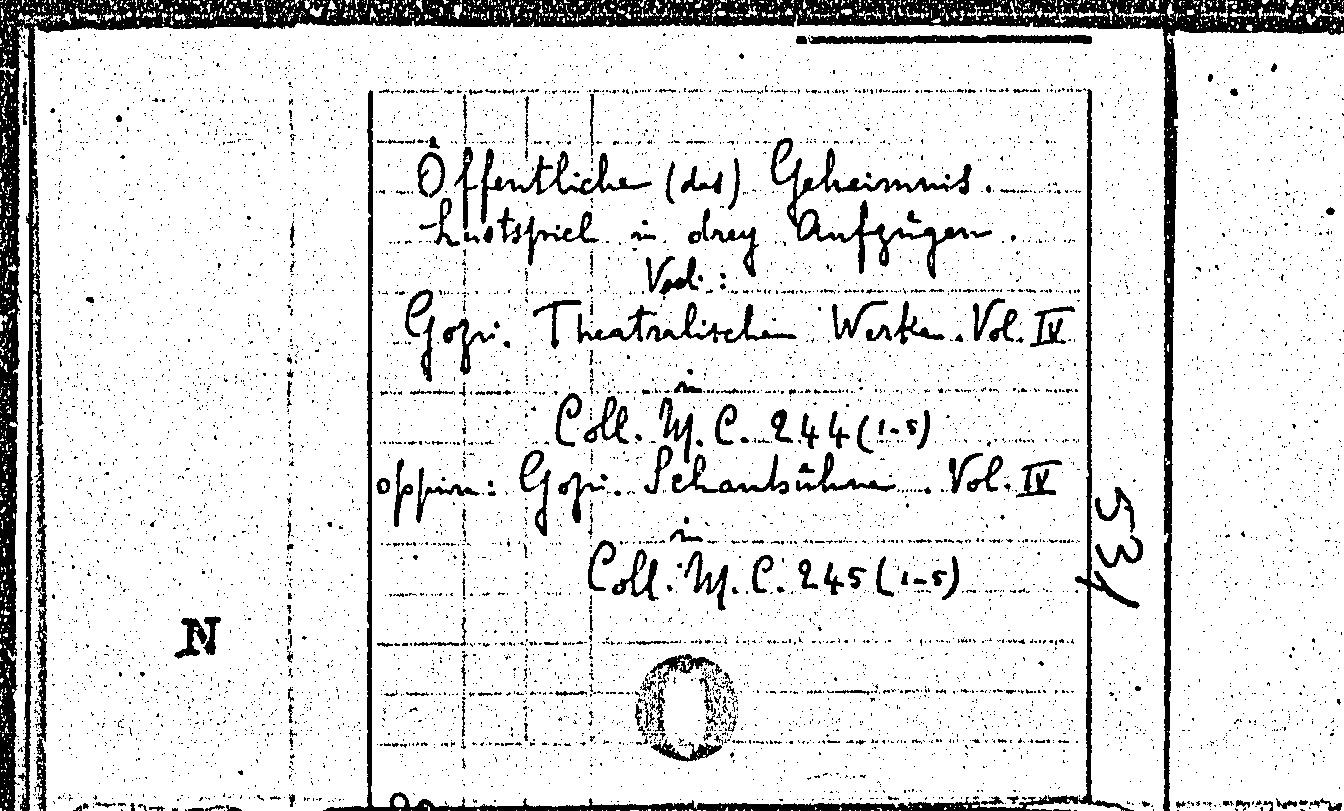 Öffentliche (das) Geheimnis.
Lustspiel in drey Aufzügen.
Vedi:
Gozzi. Theatralischen Werke. Vol. IV
in
Coll. M. C. 244 (1-5)
oppure: Gozzi. Schaubühne. Vol. IV
in
Coll. M. C. 245 (1-5)
531
N